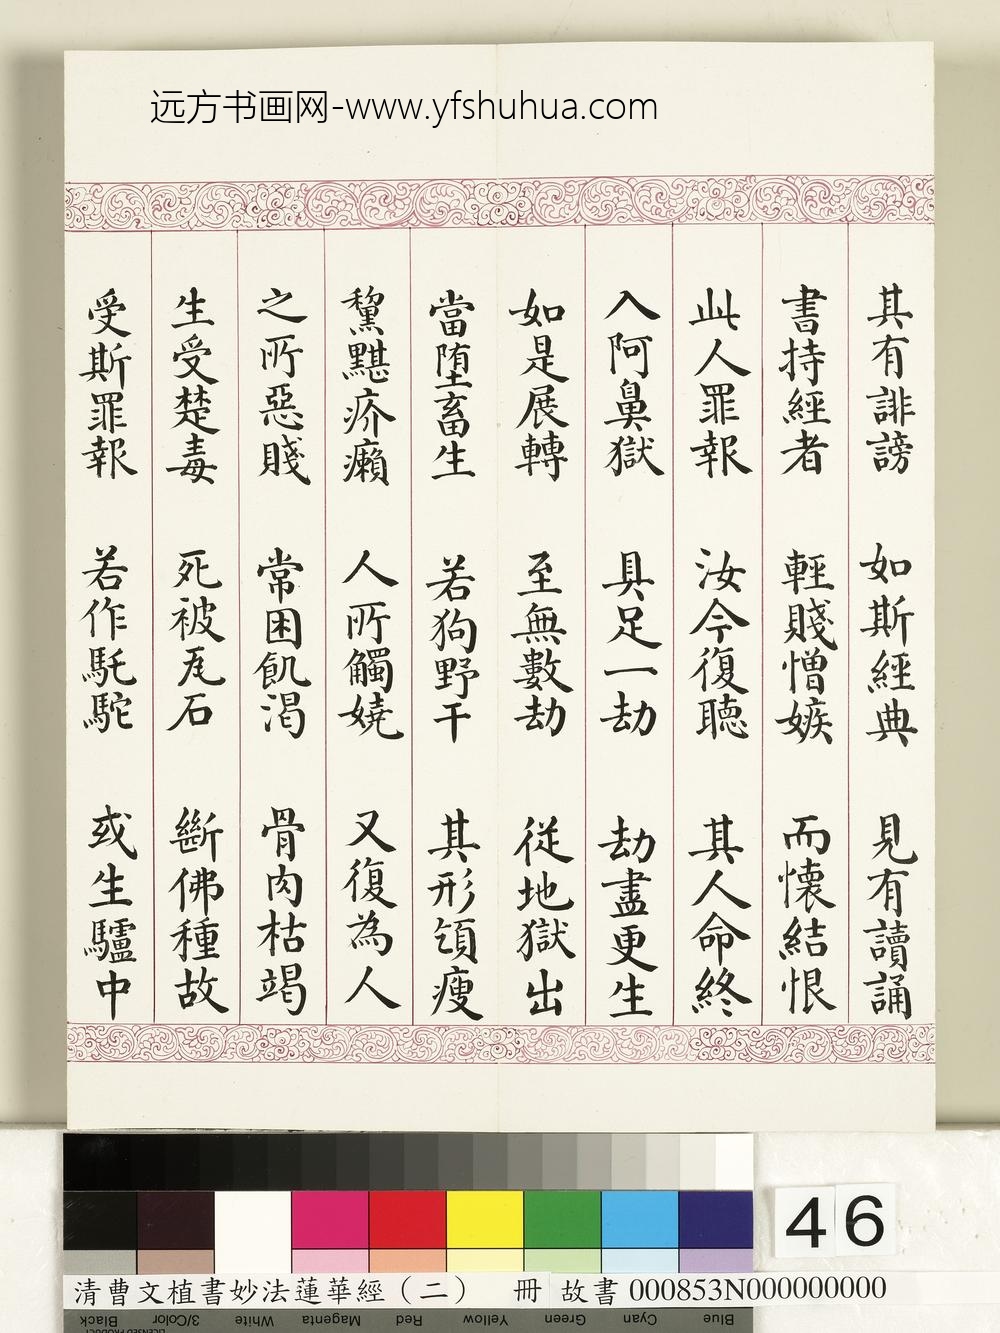 远方书画网-www.yfshuhua.com
其有誹謗 如斯經典 見有讀誦
書持經者 輕賤憎嫉 而懷結恨
此人罪報 汝今復聽 其人命終
入阿鼻獄 具足一劫 劫盡更生
如是展轉 至無數劫 從地獄出
當墮畜生 若狗野干 其形頜瘦
黧黮疥癩 人所觸嬈 又復為人
之所惡賤 常困飢渴 骨肉枯竭
生受楚毒 死被瓦石 斷佛種故
受斯罪報 若作馲駝 或生驢中
46
清曹文植書妙法蓮華經（二） 冊 故書 000853N000000000
Black 3/Color White Magenta Red Yellow Green Cyan Blue